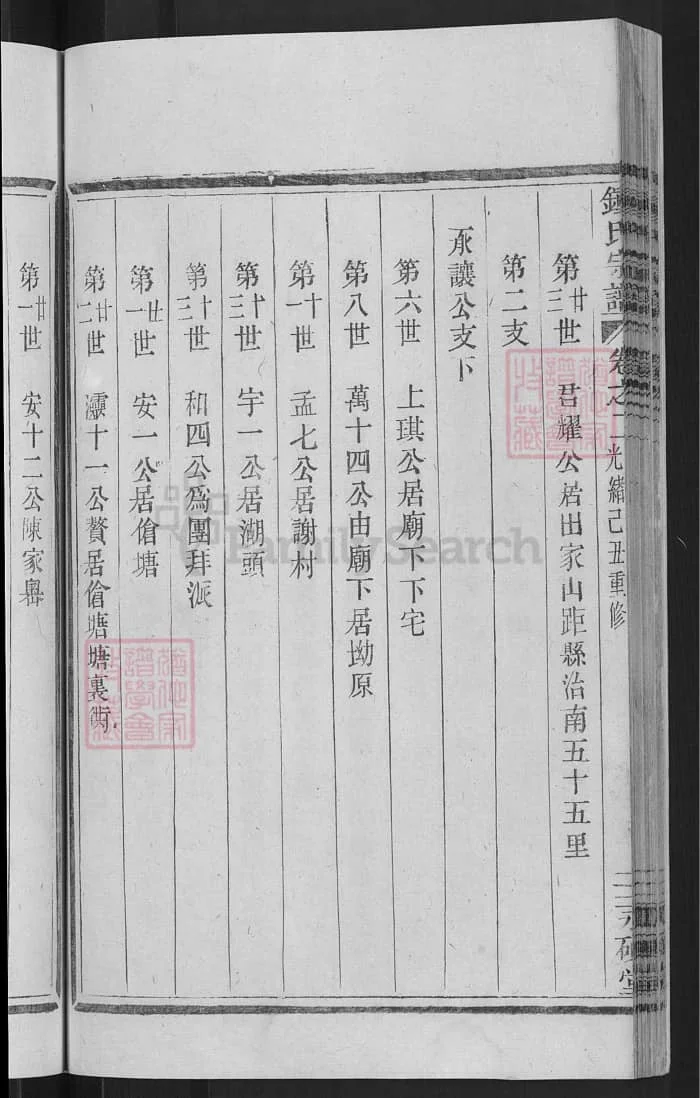 鍾氏宗譜 卷之二 光緒己丑重修
第廿三世 君耀公居出家山距縣治南五十五里
第二支
承讓公支下
第六世 上琪公居廟下下宅
第八世 萬十四公由廟下居坳原
第十一世 孟七公居謝村
第十三世 宇一公居湖頭
第十三世 和四公爲團拜派
第廿一世 安一公居傖塘
第廿二世 灋十一公贅居傖塘塘裏衕
第廿一世 安十二公陳家嶴
FamilySearch